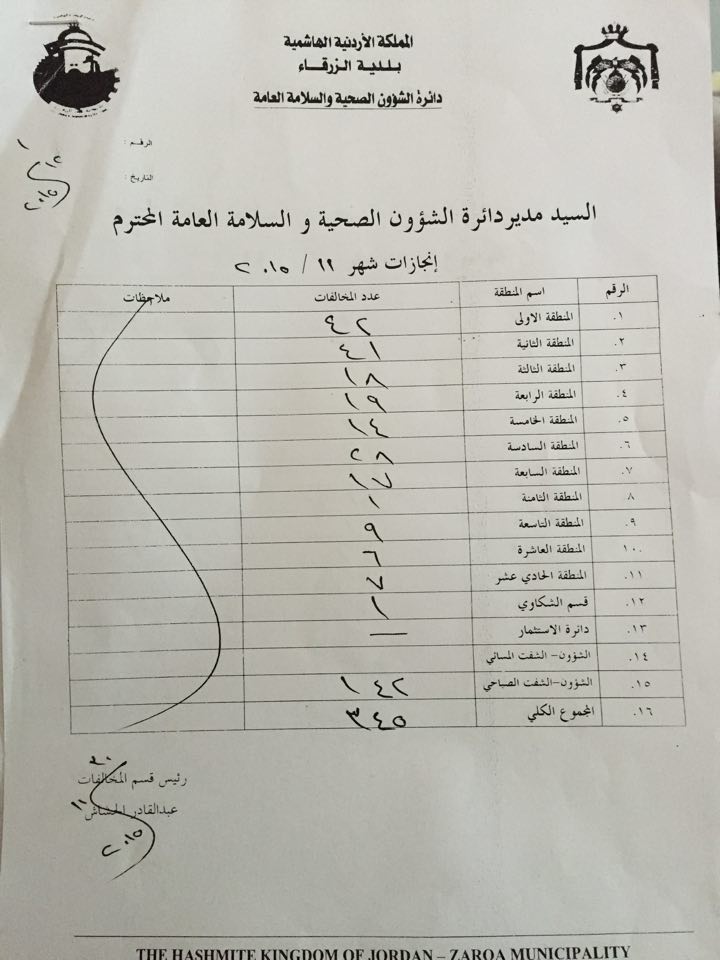 المملكة الأردنية الهاشمية
بلدية الزرقاء
دائرة الشؤون الصحية والسلامة العامة
الرقم :
التاريخ :
١ / ١٢ / ٢٠١٥
السيد مدير دائرة الشؤون الصحية و السلامة العامة المحترم
إنجازات شهر ١١ / ٢٠١٥
الرقم اسم المنطقة عدد المخالفات ملاحظات
١. المنطقة الاولى ٤٢
٢. المنطقة الثانية ٤١
٣. المنطقة الثالثة ١٨
٤. المنطقة الرابعة ١٩
٥. المنطقة الخامسة ١٤
٦. المنطقة السادسة ٢٨
٧. المنطقة السابعة ١٧
٨. المنطقة الثامنة ١
٩. المنطقة التاسعة ٩
١٠. المنطقة العاشرة ٦
١١. المنطقة الحادي عشر ٧
١٢. قسم الشكاوي ١
١٣. دائرة الاستثمار —
١٤. الشؤون- الشفت المسائي
١٥. الشؤون-الشفت الصباحي ١٤٢
١٦. المجموع الكلي ٣٤٥
رئيس قسم المخالفات
عبدالقادر الخشاش
٣٠ / ١١ / ٢٠١٥
THE HASHMITE KINGDOM OF JORDAN – ZARQA MUNICIPALITY